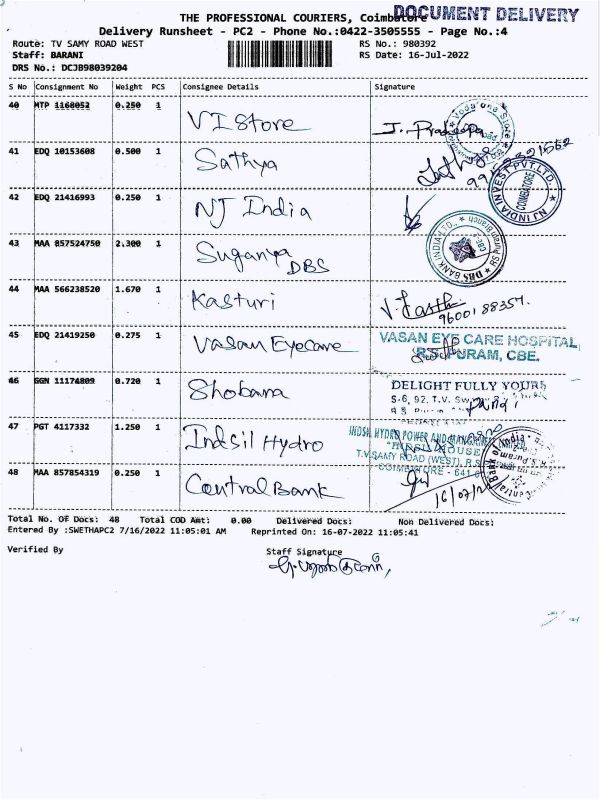 THE PROFESSIONAL COURIERS, Coimbatore
DOCUMENT DELIVERY
Delivery Runsheet - PC2 - Phone No.:0422-3505555 - Page No.:4
Route: TV SAMY ROAD WEST
RS No.: 980392
Staff: BARANI
RS Date: 16-Jul-2022
DRS No.: DCJB98039204
S No Consignment No Weight PCS Consignee Details Signature
40 MTP 1168052 0.250 1 VI Store J. Pradeepa
Vodafone Store
41 EDQ 10153608 0.500 1 Sathya
NJ INDIA INVEST PVT. LTD.
COIMBATORE
42 EDQ 21416993 0.250 1 NJ India
43 MAA 857524750 2.300 1 Suganya
DBS
DBS BANK INDIA LTD.,
44 MAA 566238520 1.670 1 Kasturi
9600188357
45 EDQ 21419250 0.275 1 Vasan Eyecare
VASAN EYE CARE HOSPITAL
R.S. PURAM, CBE.
46 GGN 11174809 0.720 1 Shobana
DELIGHT FULLY YOURS
S-6, 92, T.V.
47 PGT 4117332 1.250 1 Indsil Hydro
INDSIL HYDRO POWER AND
"INDSIL HOUSE"
T.V.SAMY ROAD (WEST), R.S.
COIMBATORE - 641
48 MAA 857854319 0.250 1 Central Bank
16/07/2
Total No. Of Docs: 48 Total COD Amt: 0.00 Delivered Docs: Non Delivered Docs:
Entered By :SWETHAPC2 7/16/2022 11:05:01 AM Reprinted On: 16-07-2022 11:05:41
Verified By
Staff Signature